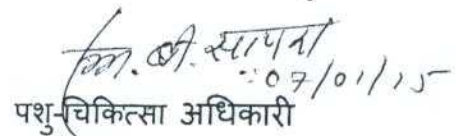 बी.
07/01/15
पशु-चिकित्सा अधिकारी